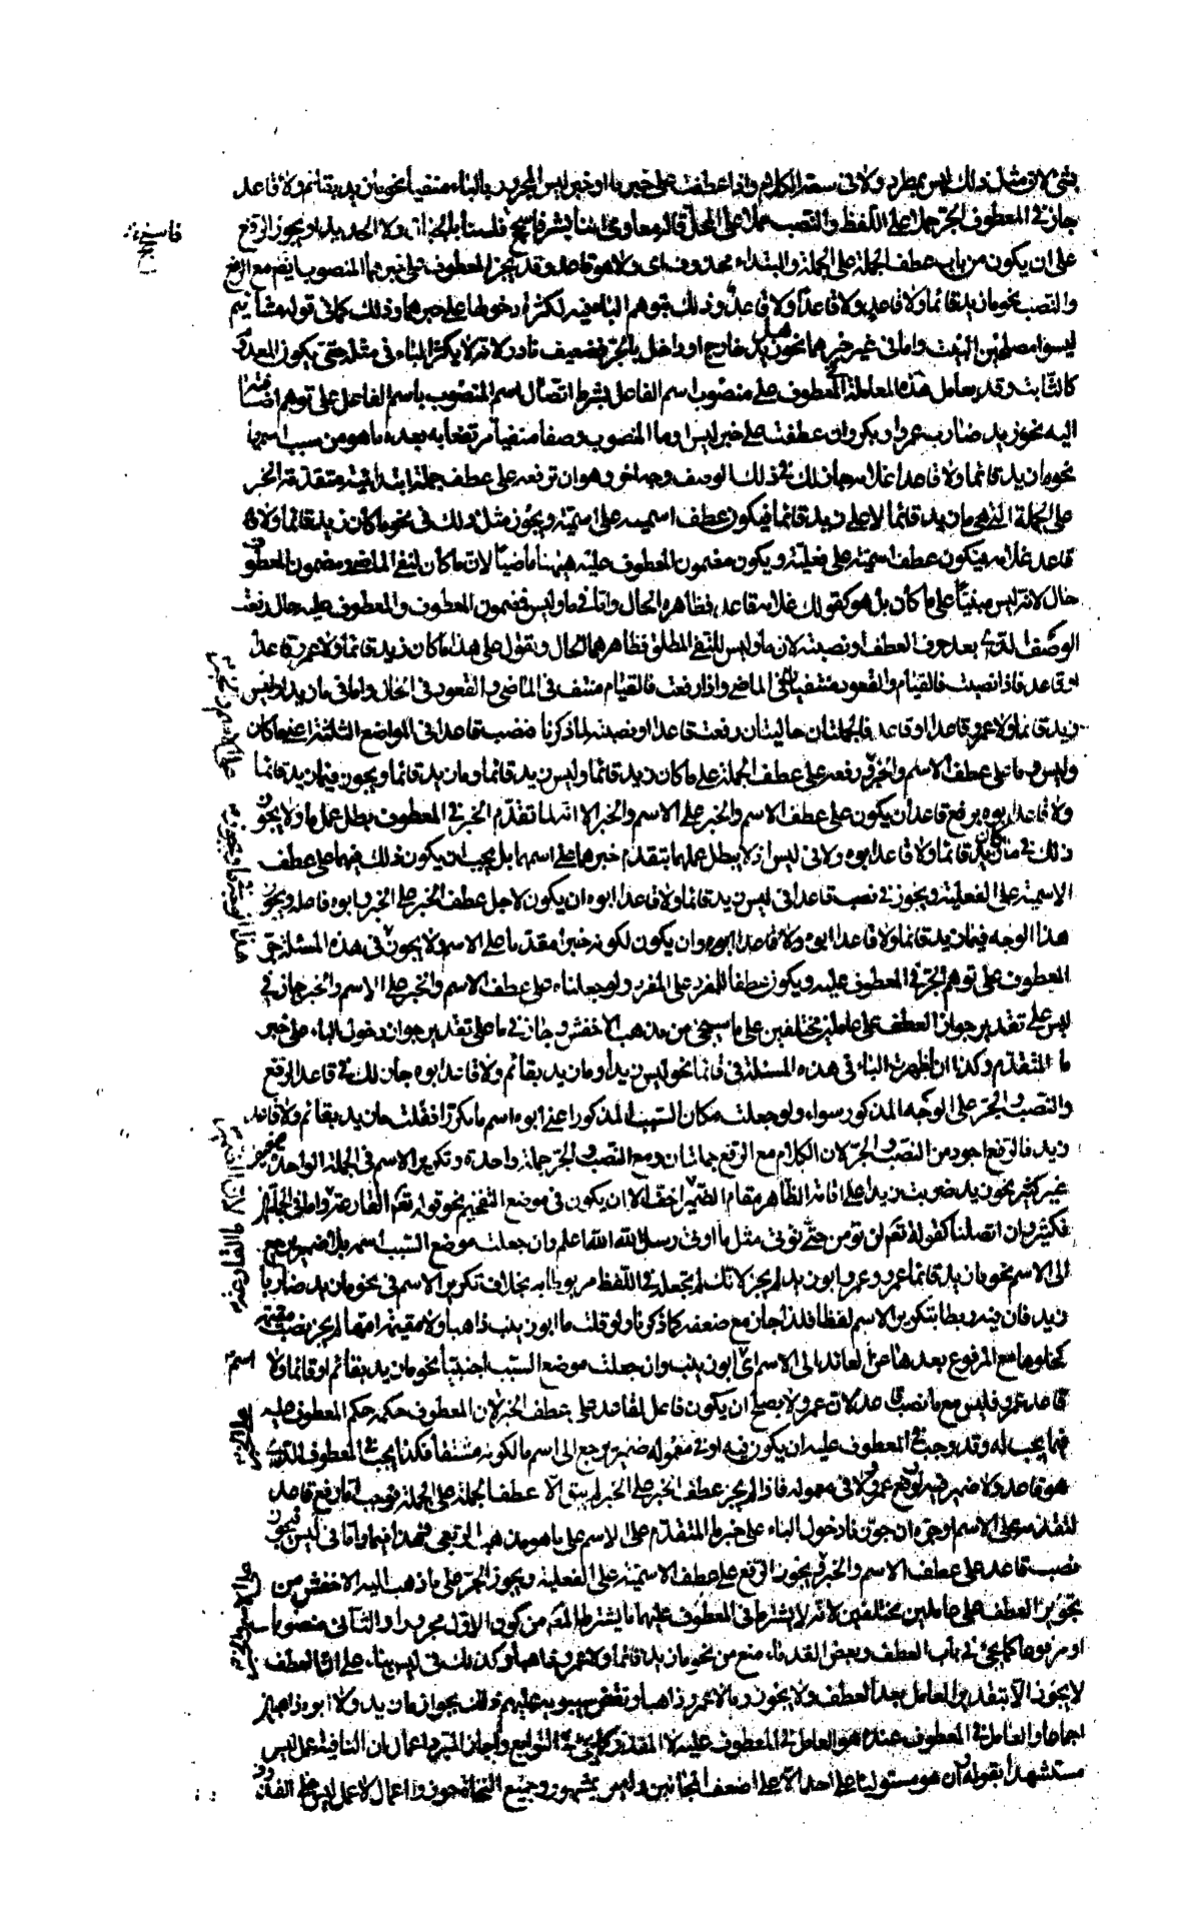 بشئ لان مثل ذلك ليس بمطرد ولا في سعة الكلام واذا عطفت على خبر ما او خبر ليس المجرور بالباء منفيا نحو ما زيد بقائم ولا قاعد
جاز في المعطوف الجر حملا على اللفظ والنصب حملا على المحل قال معاوى اننا بشر فاسجح فلسنا بالجبال ولا الحديدا ويجوز الرفع
على ان يكون من باب عطف الجملة على الجملة والمبتداء محذوف اى ولا هو قاعد وقد يجر المعطوف على خبرهما المنصوب ايضا مع الرفع
والنصب نحو ما زيد قائما ولا قاعد ولا قاعدا ولا قاعد وذلك بتوهم الباء فيه لكثرة دخولها على خبرهما وذلك كما في قوله مشائيم
ليسوا مصلحين البيت واما في غير خبرهما نحو هل زيد خارج او داخل بالجر فضعيف نادر لانه لا يكثر الباء في مثله حتى يكون المعدوم
كالثابت وقد يعامل هذه المعاملة المعطوف على منصوب اسم الفاعل بشرط اتصال اسم المنصوب باسم الفاعل على توهم اضافته
اليه نحو زيد ضارب عمرا وبكر وان عطفت على خبر ليس وما المنصوب وصفا منفيا مرتفعا به بعده ما هو من سبب اسمها
نحو ما زيد قائما ولا قاعدا غلامه جاز لك في ذلك الوصف وجه اخر وهو ان ترفعه على عطف جملة ابتدائية متقدمة الخبر
على الجملة التي هي ما زيد قائما لا على زيد قائما فيكون عطف اسمية على اسمية ويجوز مثل ذلك في نحو ما كان زيد قائما ولا
قاعد غلامه فيكون عطف اسمية على فعلية ويكون مضمون المعطوف عليه ههنا ماضيا لان ما كان لنفي الماضي ومضمون المعطوف
حال لانه ليس مبنيا على ما كان بل هو كقولك غلامه قاعد فظاهره الحال واما في ما وليس فمضمون المعطوف والمعطوف عليه حال رفعت
الوصف الذي بعد حرف العطف او نصبته لان ما وليس للنفي المطلق فظاهرهما الحال وتقول على هذا ما كان زيد قائما ولا عمرو قاعدا
او قاعد فاذا نصبت فالقيام والقعود منتفيان في الماضي واذا رفعت فالقيام منتف في الماضي والقعود في الحال واما في ما زيد او ليس
زيد قائما ولا عمرو قاعدا او قاعد فالجملتان حاليتان رفعت قاعدا او نصبته لما ذكرنا فنصب قاعدا في المواضع الثلثة اعني ما كان
وليس وما على عطف الاسم والخبر ورفعه على عطف الجملة على ما كان زيد قائما وليس زيد قائما وما زيد قائما ويجوز في ما زيد قائما
ولا قاعد ابوه برفع قاعد ان يكون على عطف الاسم والخبر على الاسم والخبر الا انه لما تقدم الخبر في المعطوف بطل عمل ما ولا يجوز
ذلك في ما كان زيد قائما ولا قاعد ابوه ولا في ليس اذ لا يبطل عملهما بتقدم خبرهما على اسمهما بل يجب ان يكون ذلك فيهما على عطف
الاسمية على الفعلية ويجوز في نصب قاعدا في ليس زيد قائما ولا قاعدا ابوه ان يكون لاجل عطف الخبر على الخبر وابوه فاعله ويجوز
هذا الوجه في ما زيد قائما ولا قاعدا ابوه ولا قاعدا ابوه وان يكون لكونه خبرا مقدما على الاسم ولا يجوز في هذه المسئلة جر
المعطوف على توهم الجر في المعطوف عليه ويكون عطفا للمفرد على المفرد ولو جعلناه على عطف الاسم والخبر على الاسم والخبر جاز في
ليس على تقدير جواز العطف على عاملين مختلفين على ما سيجئ من مذهب الاخفش وجاز في ما على تقدير جواز دخول الباء على خبر
ما المتقدم وكذا ان ظهرت الباء في هذه المسئلة في قائما نحو ليس زيد او ما زيد بقائم ولا قاعد ابوه جاز لك في قاعد الرفع
والنصب والجر على الوجه المذكور سواء ولو جعلت مكان السبب المذكور اعني ابوه اسم ما مكررا فقلت ما زيد بقائم ولا قاعد
زيد فالرفع اجود من النصب والجر لان الكلام مع الرفع جملتان ومع النصب والجر جملة واحدة وتكرير الاسم في الجملة الواحدة
غير كثير نحو زيد ضربت زيدا على اقامة الظاهر مقام الضمير اخف الا ان يكون في موضع التفخيم نحو قوله تعم القارعة واما في الجملتين
فكثير وان اتصلتا كقوله تعم لن نؤمن حتى نؤتى مثل ما اوتى رسل الله الله اعلم وان جعلت موضع السبب اسمه بلا ضمير يرجع
الى الاسم نحو ما زيد قائما عمرو وعمرو ابو زيد لم يجز لانك لم تجعله في اللفظ مربوطا به بخلاف تكرير الاسم في نحو ما زيد ضاربا
زيد فان فيه ربطا بتكرير الاسم لفظا فلذا جاز مع ضعفه كما ذكرنا ولو قلت ما ابو زينب ذاهبا ولا مقيمة امها لم يجز نصب مقيمة
لخلوها مع المرفوع بعدها عن العائد الى الاسم اي ابو زينب وان جعلت موضع السبب اجنبيا نحو ما زيد بقائم او قائما ولا
قاعد عمرو فليس مع ما نصب قاعد لان عمرو لا يصلح ان يكون فاعلا لقاعد على عطف الخبر لان المعطوف حكمه حكم المعطوف عليه
فيما يجب له وقد وجب في المعطوف عليه ان يكون فيه او في معموله ضمير يرجع الى اسم ما لكونه مشتقا فكذا يجب في المعطوف الذي
هو قاعد ولا ضمير فيه لرفع عمرو ولا في معموله فاذا لم يجز عطف الخبر على الخبر لم يبق الا عطف الجملة على الجملة فوجب اما رفع قاعد
لتقدمه على الاسم او جره ان جوزنا دخول الباء على خبر ما المتقدم على الاسم على ما هو مذهب الربعي فهذا في ما واما في ليس فيجوز
نصب قاعد على عطف الاسم والخبر ويجوز الرفع على عطف الاسمية على الفعلية ويجوز الجر على ما ذهب اليه الاخفش من
تجويز العطف على عاملين مختلفين لانه لا يشترط في المعطوف عليهما ما يشترط المص من كون الاول مجرورا والثاني منصوبا
او مرفوعا كما يجئ في باب العطف وبعض القدماء منع من نحو ما زيد قائما ولا عمرو ذاهبا وكذلك في ليس بناء على ان العطف
لا يجوز الا بتقدير العامل بعد العطف ولا يجوز وما لا عمرو ذاهبا ونقض سيبويه عليهم ذلك بجواز ما زيد ولا ابوه ذاهبين
اجماعا والعامل في المعطوف عنده هو العامل في المعطوف عليه لا المقدر كما يجئ في التوابع واجاز المبرد اعمال ان النافية عمل ليس
مستشهدا بقوله ان هو مستوليا على احد الا على اضعف المجانين وليس بمشهور وجميع النحاة جوزوا اعمال لا عمل ليس على الشذوذ